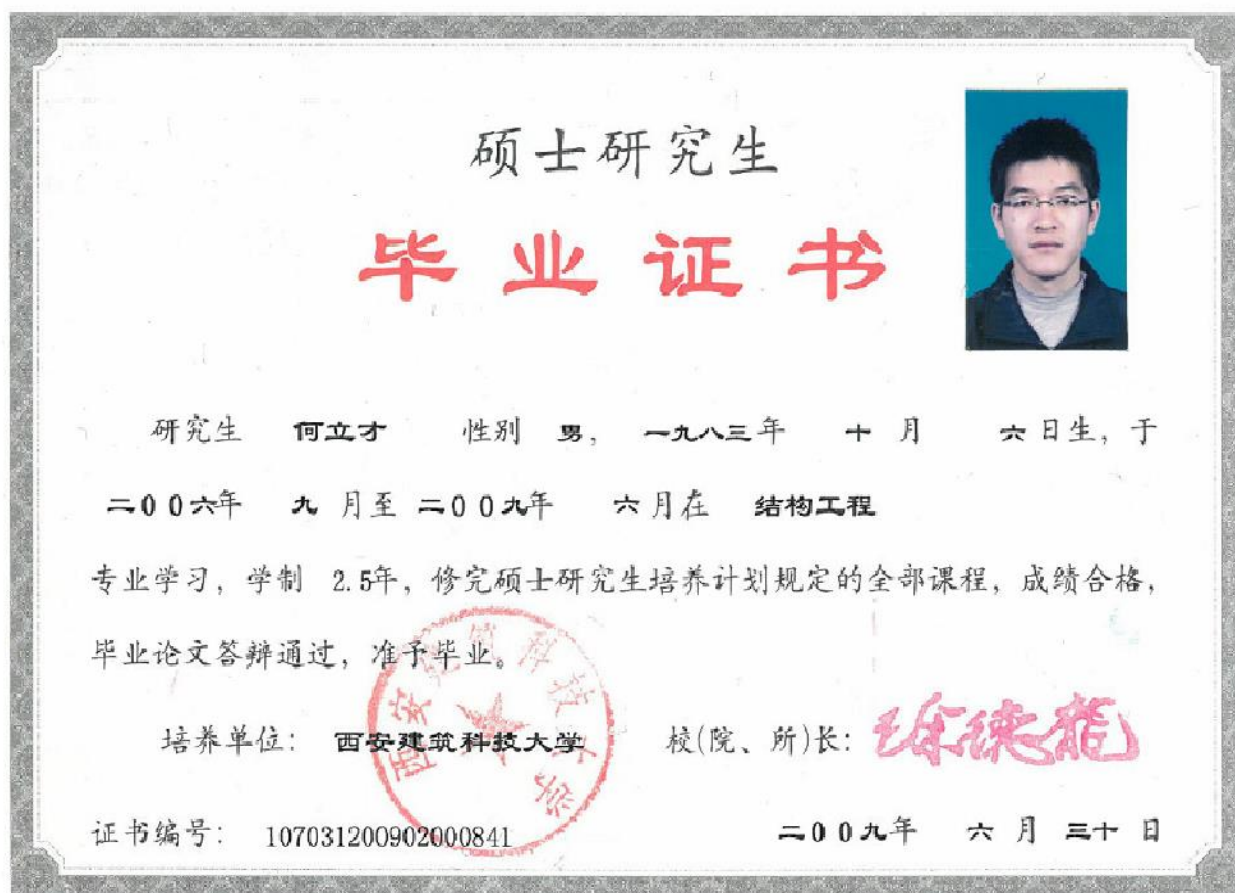 硕士研究生
毕业证书
研究生 何立才 性别 男， 一九八三年 十 月 六日生，于
二00六年 九 月至 二00九年 六 月在 结构工程
专业学习，学制 2.5年，修完硕士研究生培养计划规定的全部课程，成绩合格，
毕业论文答辩通过，准予毕业。
西安建筑科技大学
培养单位： 西安建筑科技大学 校(院、所)长： 徐德龙
证书编号： 107031200902000841 二00九年 六 月 三十 日